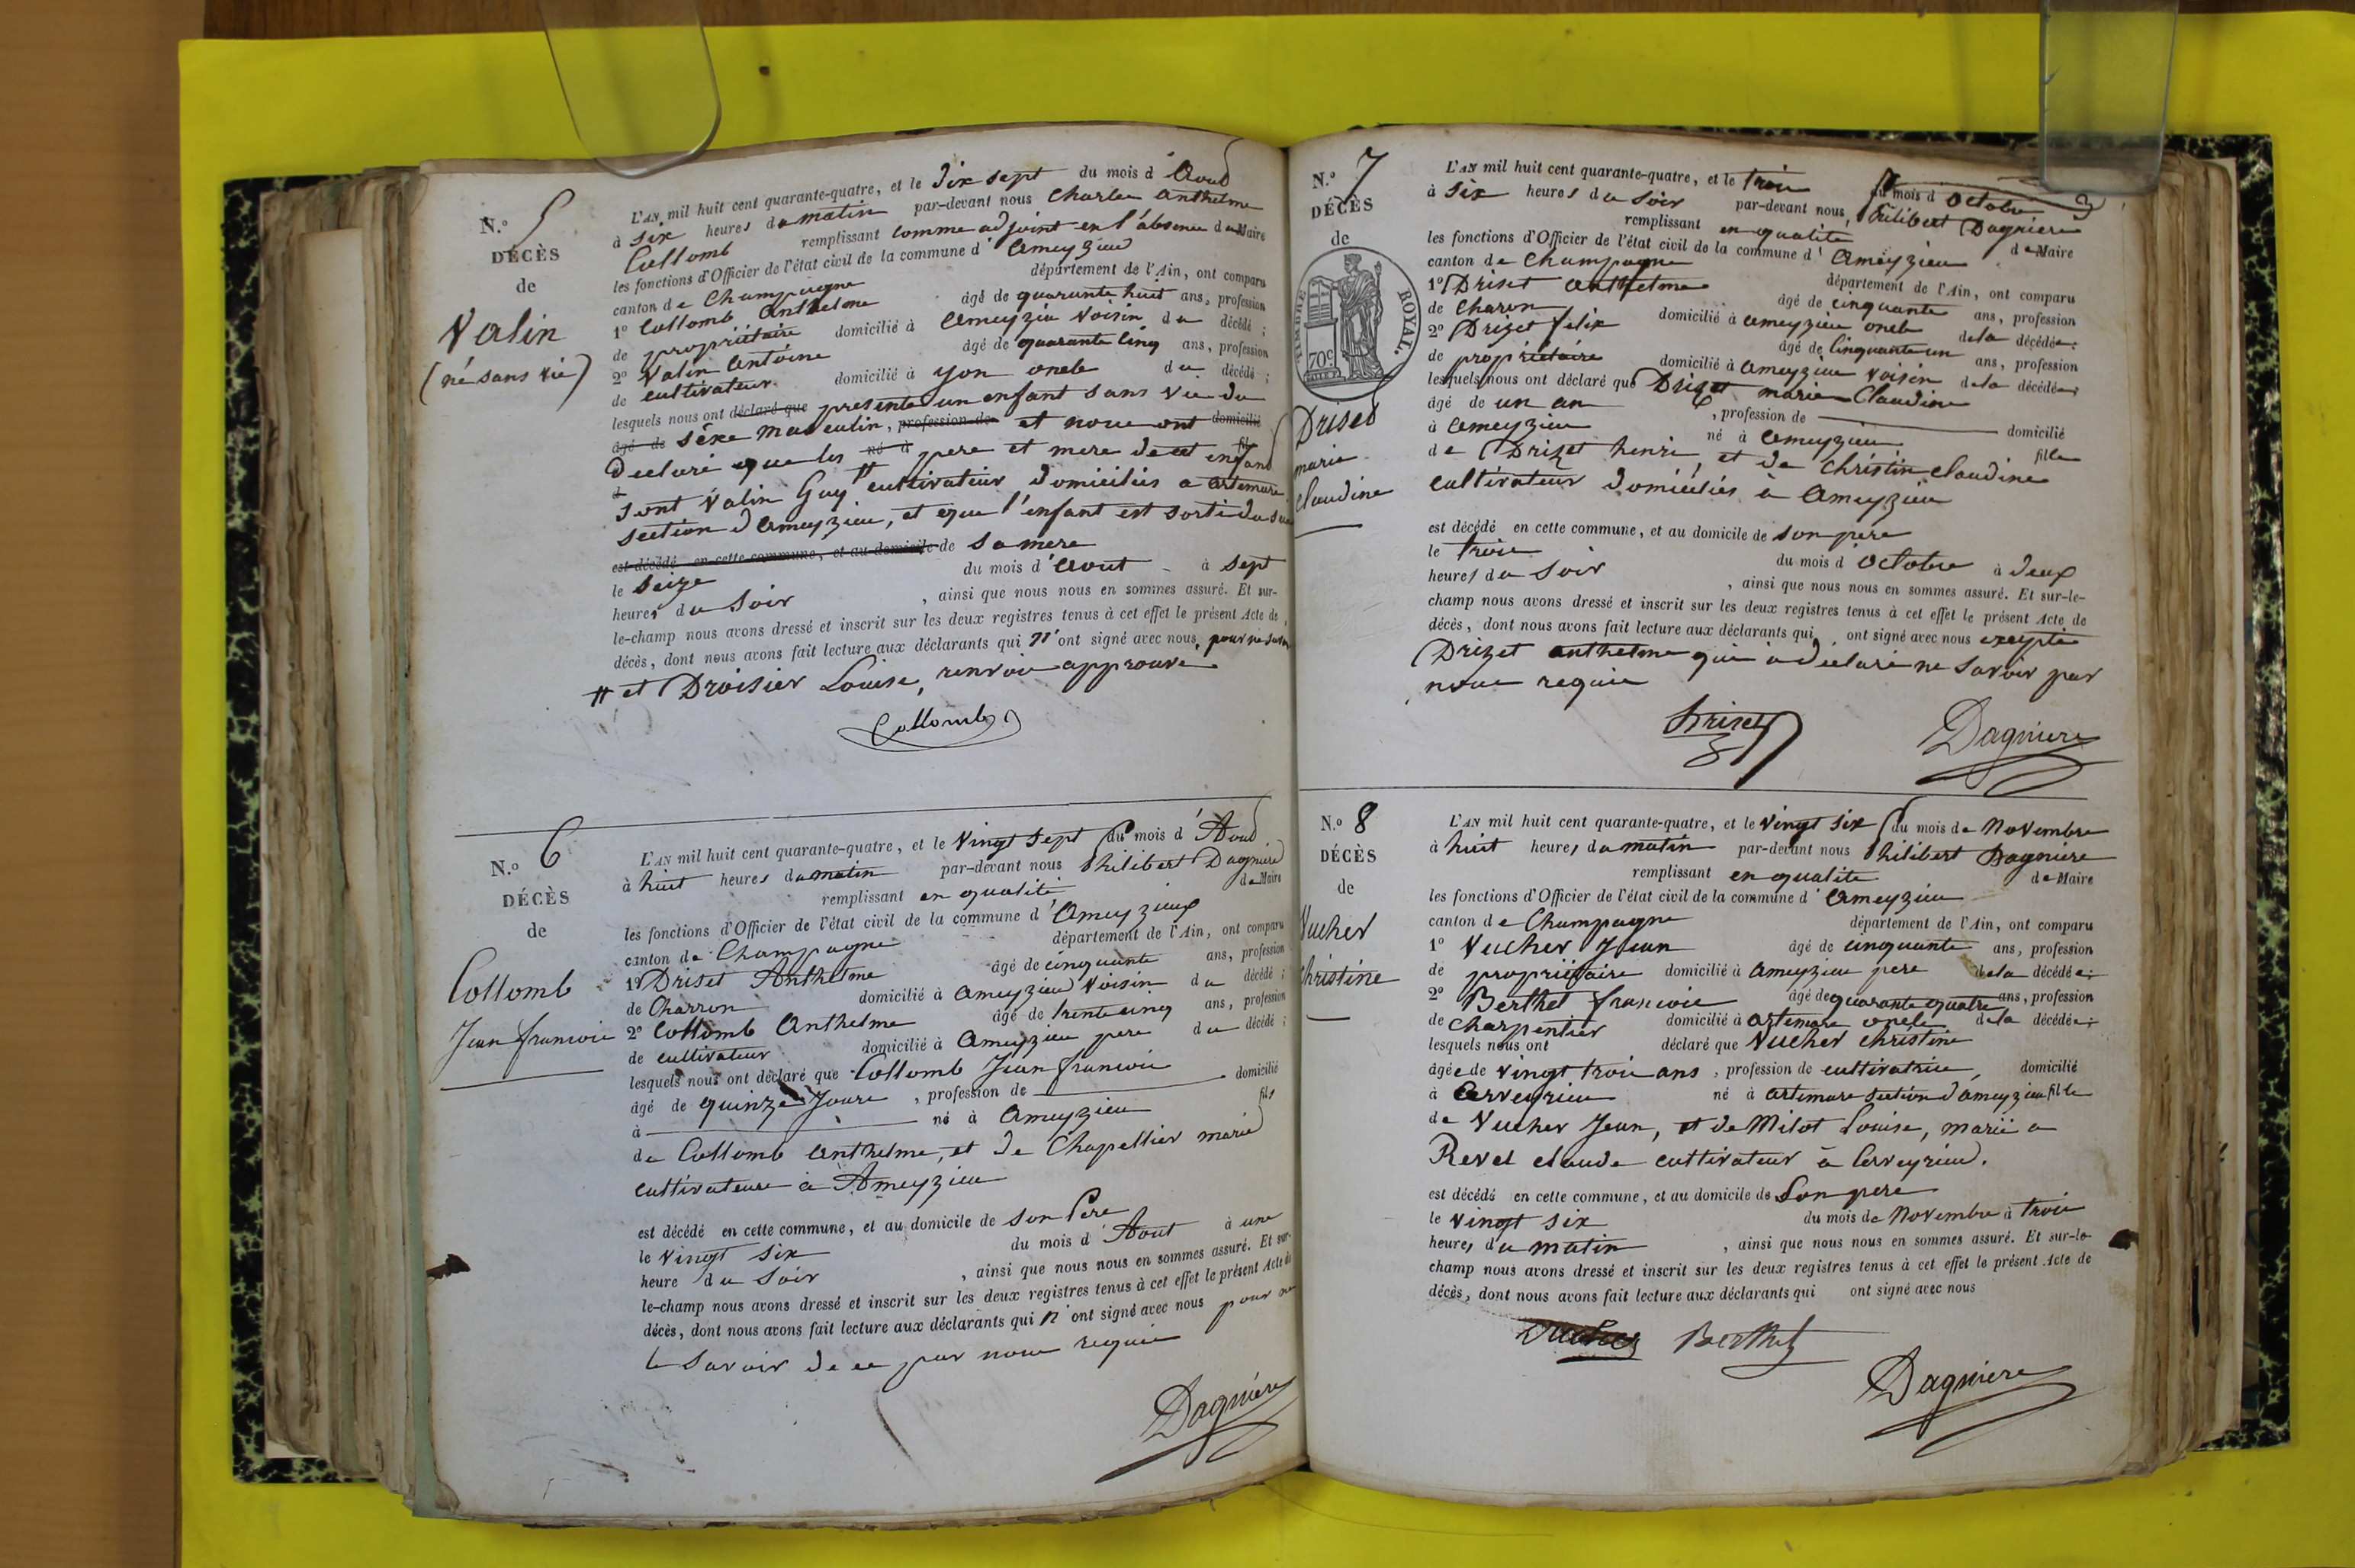 N.° 5
DÉCÈS
de
Valin
(né sans vie)
L'AN mil huit cent quarante-quatre, et le dix sept du mois d'Aout
à six heures du matin par-devant nous Charles Anthelme
Collomb remplissant comme adjoint en l'absence du Maire
les fonctions d'Officier de l'état civil de la commune d'Ameyzieu
canton de Champagne département de l'Ain, ont comparu
1° Collomb Anthelme âgé de quarante huit ans, profession
de propriétaire domicilié à Ameyzieu voisin du décédé;
2° Valin Antoine âgé de quarante cinq ans, profession
de cultivateur domicilié à yon oncle du décédé;
lesquels nous ont déclaré que presenté un enfant sans vie du
âgé de sèxe masculin, profession de et nous ont domicilié
declaré que les né à pere et mere de cet enfant fils
d sont Valin Guy # cultivateur domiciliés a artemare
section d'ameyzieu, et que l'enfant est sorti du sein
est décédé en cette commune, et au domicile de sa mere
le seize du mois d'Aout à sept
heures du soir, ainsi que nous nous en sommes assuré. Et sur-
le-champ nous avons dressé et inscrit sur les deux registres tenus à cet effet le présent Acte de
décès, dont nous avons fait lecture aux déclarants qui n'ont signé avec nous, pour ne savoir
# et Droisier Louise, renvoi approuvé
Collomb
N.° 6
DÉCÈS
de
Collomb
Jean francois
L'AN mil huit cent quarante-quatre, et le vingt sept du mois d'Aout
à huit heures du matin par-devant nous Philibert Dagniere
remplissant en qualité de Maire
les fonctions d'Officier de l'état civil de la commune d'Ameyzieux
canton de Champagne département de l'Ain, ont comparu
1° Driset Anthelme âgé de cinquante ans, profession
de Charron domicilié à Ameyzieu voisin du décédé;
2° Collomb Anthelme âgé de trente cinq ans, profession
de cultivateur domicilié à Ameyzieu pere du décédé;
lesquels nous ont déclaré que Collomb Jean francois
âgé de quinze Jours, profession de domicilié
à né à Ameyzieu fils
de Collomb anthelme, et de Chapellier marie
cultivateurs à Ameyzieu
est décédé en cette commune, et au domicile de son Pere
le vingt six du mois d'Aout à une
heure du soir, ainsi que nous nous en sommes assuré. Et sur-
le-champ nous avons dressé et inscrit sur les deux registres tenus à cet effet le présent Acte de
décès, dont nous avons fait lecture aux déclarants qui n'ont signé avec nous pour ne
le savoir de ce par nous requis
Dagniere
N.° 7
DÉCÈS
de
TIMBRE ROYAL.
70c
Driset
marie
claudine
L'AN mil huit cent quarante-quatre, et le trois du mois d'octobre
à six heures du soir par-devant nous, Philibert Dagniere
remplissant en qualité de Maire
les fonctions d'Officier de l'état civil de la commune d'Ameyzieu
canton de Champagne département de l'Ain, ont comparu
1° Driset anthelme âgé de cinquante ans, profession
de Charon domicilié à ameyzieu oncle de la décédée;
2° Drizet felix âgé de cinquante un ans, profession
de propriétaire domicilié à Ameyzieu voisin de la décédée;
lesquels nous ont déclaré que Drizet marie Claudine
âgé de un an, profession de domicilié
à Ameyzieu né à Ameyzieu fille
de Drizet henri, et de Christin claudine
cultivateur domiciliés à Ameyzieu
est décédé en cette commune, et au domicile de son père
le trois du mois d'Octobre à deux
heures du soir, ainsi que nous nous en sommes assuré. Et sur-le-
champ nous avons dressé et inscrit sur les deux registres tenus à cet effet le présent Acte de
décès, dont nous avons fait lecture aux déclarants qui ont signé avec nous excepté
Drizet anthelme qui a déclaré ne savoir par
nous requis
Driset
Dagniere
N.° 8
DÉCÈS
de
Vucher
Christine
L'AN mil huit cent quarante-quatre, et le vingt six du mois de Novembre
à huit heures du matin par-devant nous Philibert Dagniere
remplissant en qualité de Maire
les fonctions d'Officier de l'état civil de la commune d'Ameyzieu
canton de Champagne département de l'Ain, ont comparu
1° Vucher Jean âgé de cinquante ans, profession
de propriétaire domicilié à Ameyzieu pere de la décédée;
2° Berthet francois âgé de quarante quatre ans, profession
de charpentier domicilié à artemare oncle de la décédée;
lesquels nous ont déclaré que Vucher christine
âgée de vingt trois ans, profession de cultivatrice, domicilié
à Cerveyrieu né à artemare section d'ameyzieu fille
de Vucher Jean, et de Milot Louise, marié a
Revel claude cultivateur à Cerveyrieu.
est décédé en cette commune, et au domicile de son pere
le vingt six du mois de Novembre à trois
heures du matin, ainsi que nous nous en sommes assuré. Et sur-le-
champ nous avons dressé et inscrit sur les deux registres tenus à cet effet le présent Acte de
décès, dont nous avons fait lecture aux déclarants qui ont signé avec nous
Vucher Berthet
Dagniere